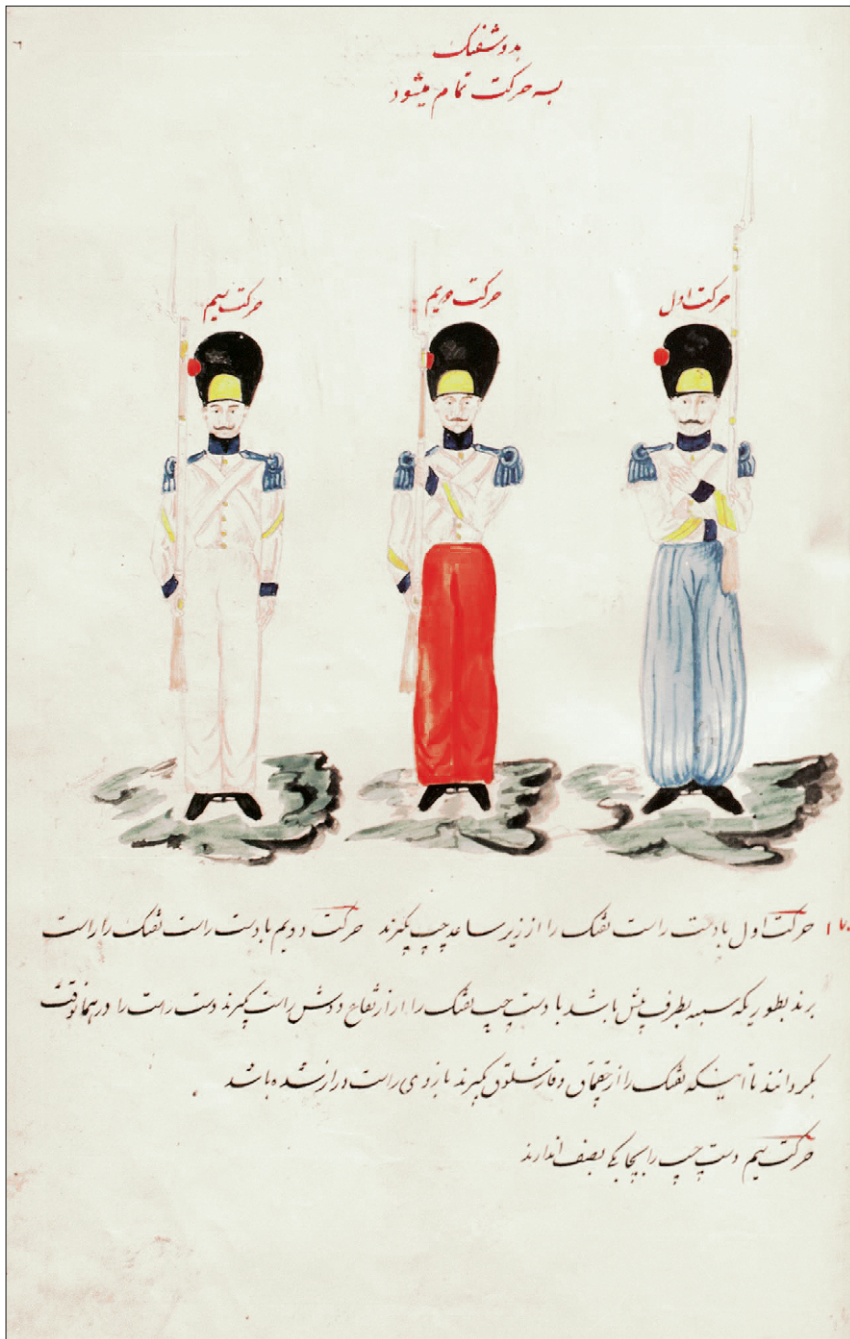 بدوشفنک
بسه حرکت تمام میشود
حرکت اول
حرکت دویم
حرکت سیم
حرکت اول با دست راست تفنک را از زیر ساعد چپ بگیرند حرکت دویم با دست راست تفنک را راست
برند بطوریکه سمبه بطرف پیش باشد با دست چپ تفنک را از ارتفاع دوش راست گیرند دست راست را در همانوقت
بگردانند تا اینکه تفنک را از چقماق و گیرند بازوی راست دراز شده باشد
حرکت سیم دست چپ را بچابکی بصف اندازند